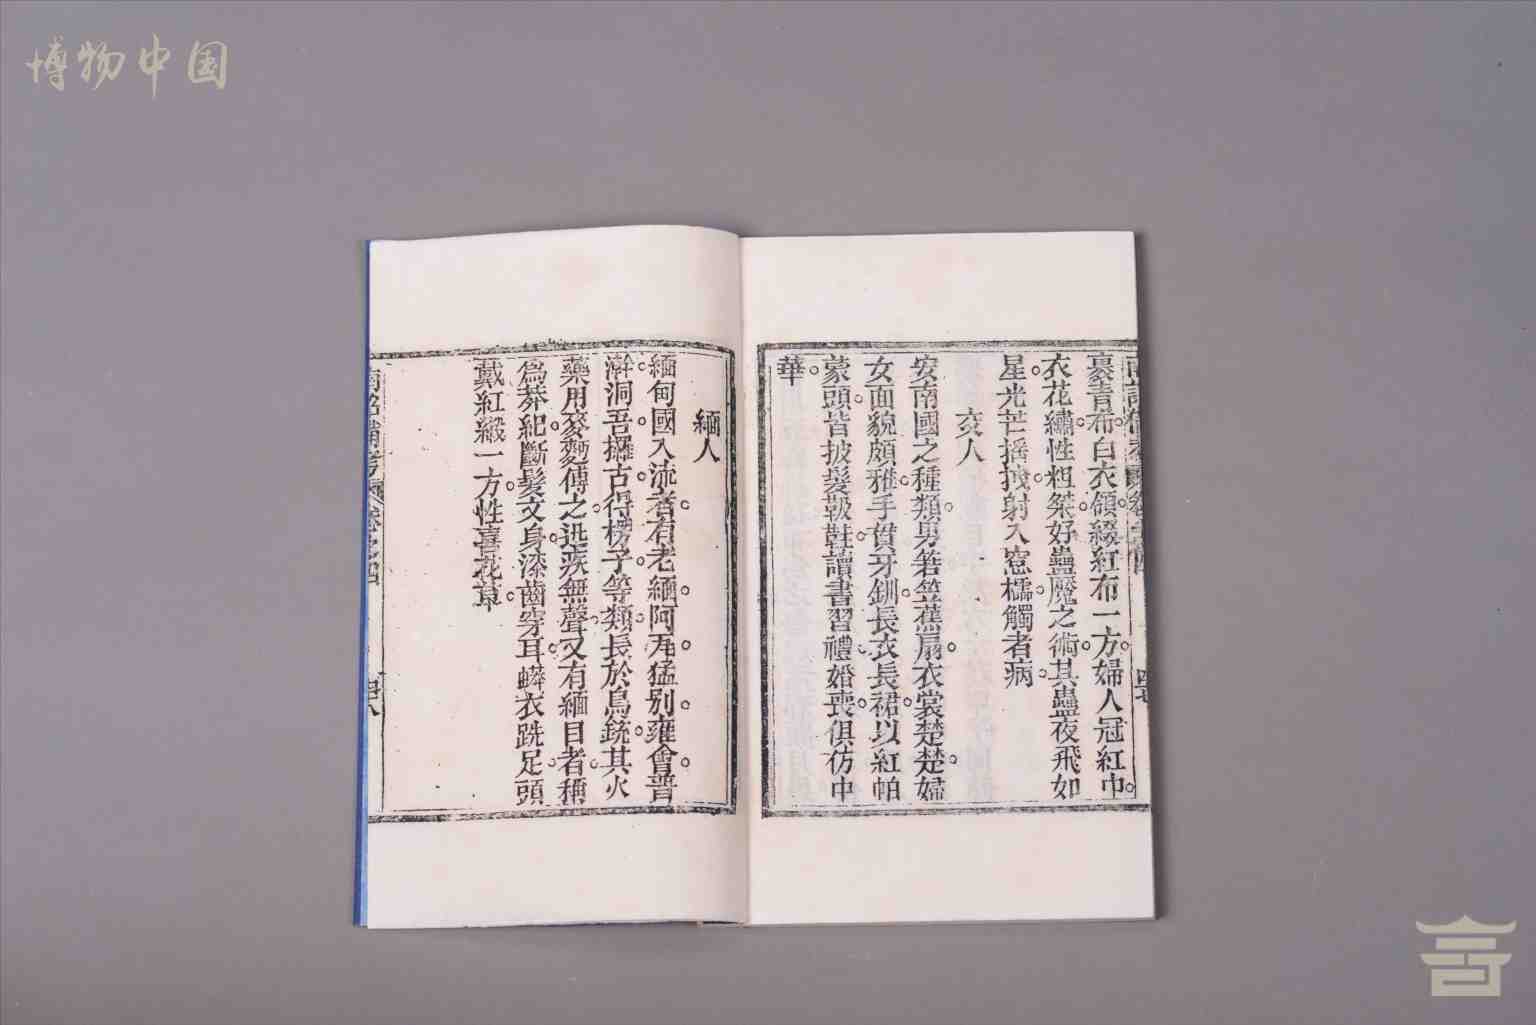 博物中国
裹青布白衣領綴紅布一方婦人冠紅巾
衣花繡性粗桀好蠱魘之術其蠱夜飛如
星光芒搖拽射入窓櫺觸者病
交人
安南國之種類男箬笠蕉扇衣裳楚楚婦
女面貌頗雅手貫牙釧長衣長裙以紅帕
蒙頭皆披髮靸鞋讀書習禮婚喪俱仿中
華
四七
緬人
緬甸國入流者有老緬阿瓦猛別雍會普
洞吾擺古得楞子等類長於鳥銃其火
藥用麥麪傅之迅疾無聲又有緬目者稱
爲莽紀斷髮文身漆齒穿耳衣跣足頭
戴紅緞一方性喜花草
四八